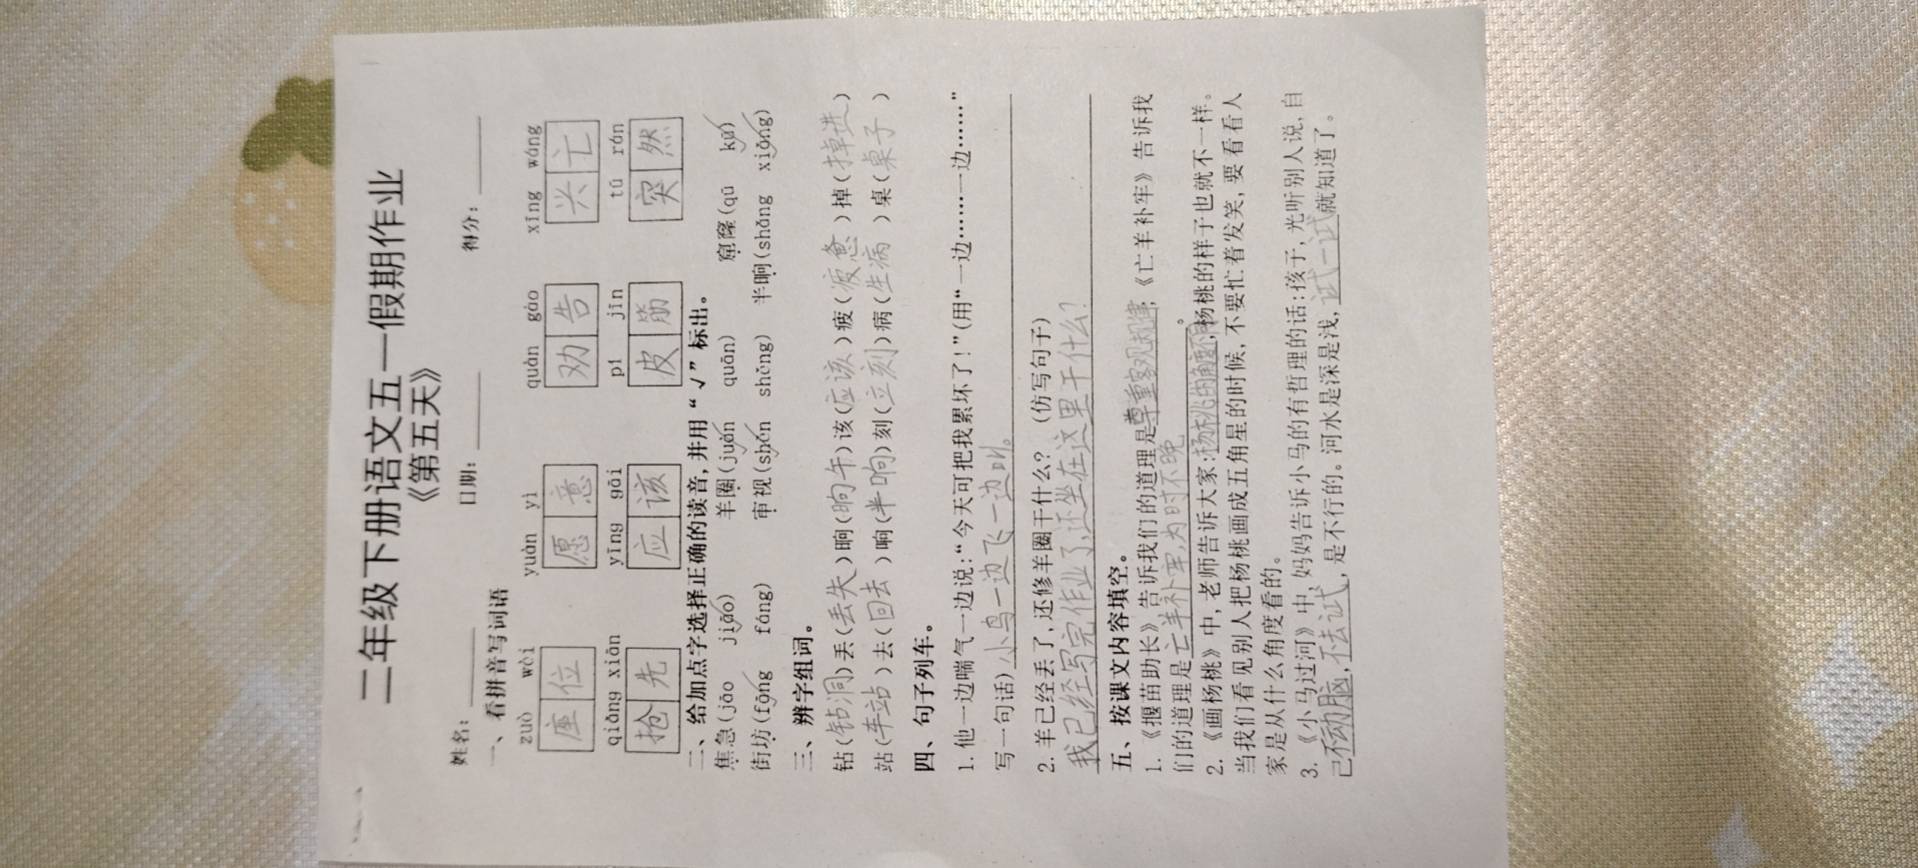 二年级下册语文五一假期作业
《第五天》
姓名：________ 日期：________ 得分：________
一、看拼音写词语
zuò wèi yuàn yì quàn gào xīng wáng
座位 愿意 劝告 兴亡
qiǎng xiān yīng gāi pí jīn tū rán
抢先 应该 皮筋 突然
二、给加点字选择正确的读音,并用“√”标出。
焦急(jāo jiāo) 羊圈(juàn quān) 窟窿(qū kū)
街坊(fāng fáng) 审视(shěn shěng) 半晌(shǎng xiǎng)
三、辨字组词。
钻(钻洞)丢(丢失)晌(晌午)该(应该)疲(疲惫)掉(掉进)
站(车站)去(回去)响(半响)刻(立刻)病(生病)桌(桌子)
四、句子列车。
1. 他一边喘气一边说:“今天可把我累坏了!”(用“一边……一边……”
写一句话)小鸟一边飞一边叫。
2. 羊已经丢了,还修羊圈干什么? (仿写句子)
我已经写完作业了,还坐在这里干什么?
五、按课文内容填空。
1.《揠苗助长》告诉我们的道理是尊重客观规律;《亡羊补牢》告诉我
们的道理是亡羊补牢,为时不晚。
2. 《画杨桃》中,老师告诉大家:杨桃的角度不同,杨桃的样子也就不一样。
当我们看见别人把杨桃画成五角星的时候,不要忙着发笑,要看看人
家是从什么角度看的。
3. 《小马过河》中,妈妈告诉小马的有哲理的话:孩子,光听别人说,自
己不动脑,不去试,是不行的。河水是深是浅,试一试就知道了。